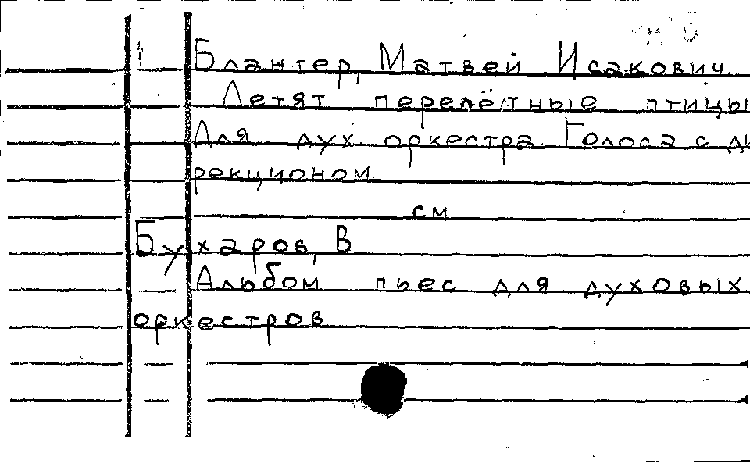 Блантер, Матвей Исакович
Летят перелётные птицы
Для дух. оркестра. Голоса с ди
рекционом
см
Бухаров, В
Альбом пьес для духовых
оркестров